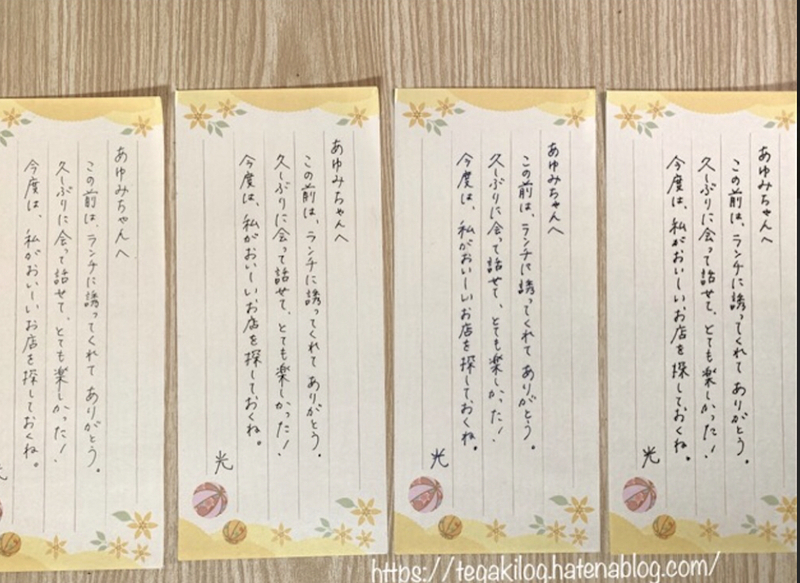 あゆみちゃんへ
この前は、ランチに誘ってくれて ありがとう。
久しぶりに会って話せて、とても楽しかった!
今度は、私がおいしいお店を探しておくね。
光
あゆみちゃんへ
この前は、ランチに誘ってくれて ありがとう。
久しぶりに会って話せて、とても楽しかった!
今度は、私がおいしいお店を探しておくね。
光
あゆみちゃんへ
この前は、ランチに誘ってくれて ありがとう。
久しぶりに会って話せて、とても楽しかった!
今度は、私がおいしいお店を探しておくね。
光
あゆみちゃんへ
この前は、ランチに誘ってくれて ありがとう。
久しぶりに会って話せて、とても楽しかった!
今度は、私がおいしいお店を探しておくね。
https://tegakilog.hatenablog.com/